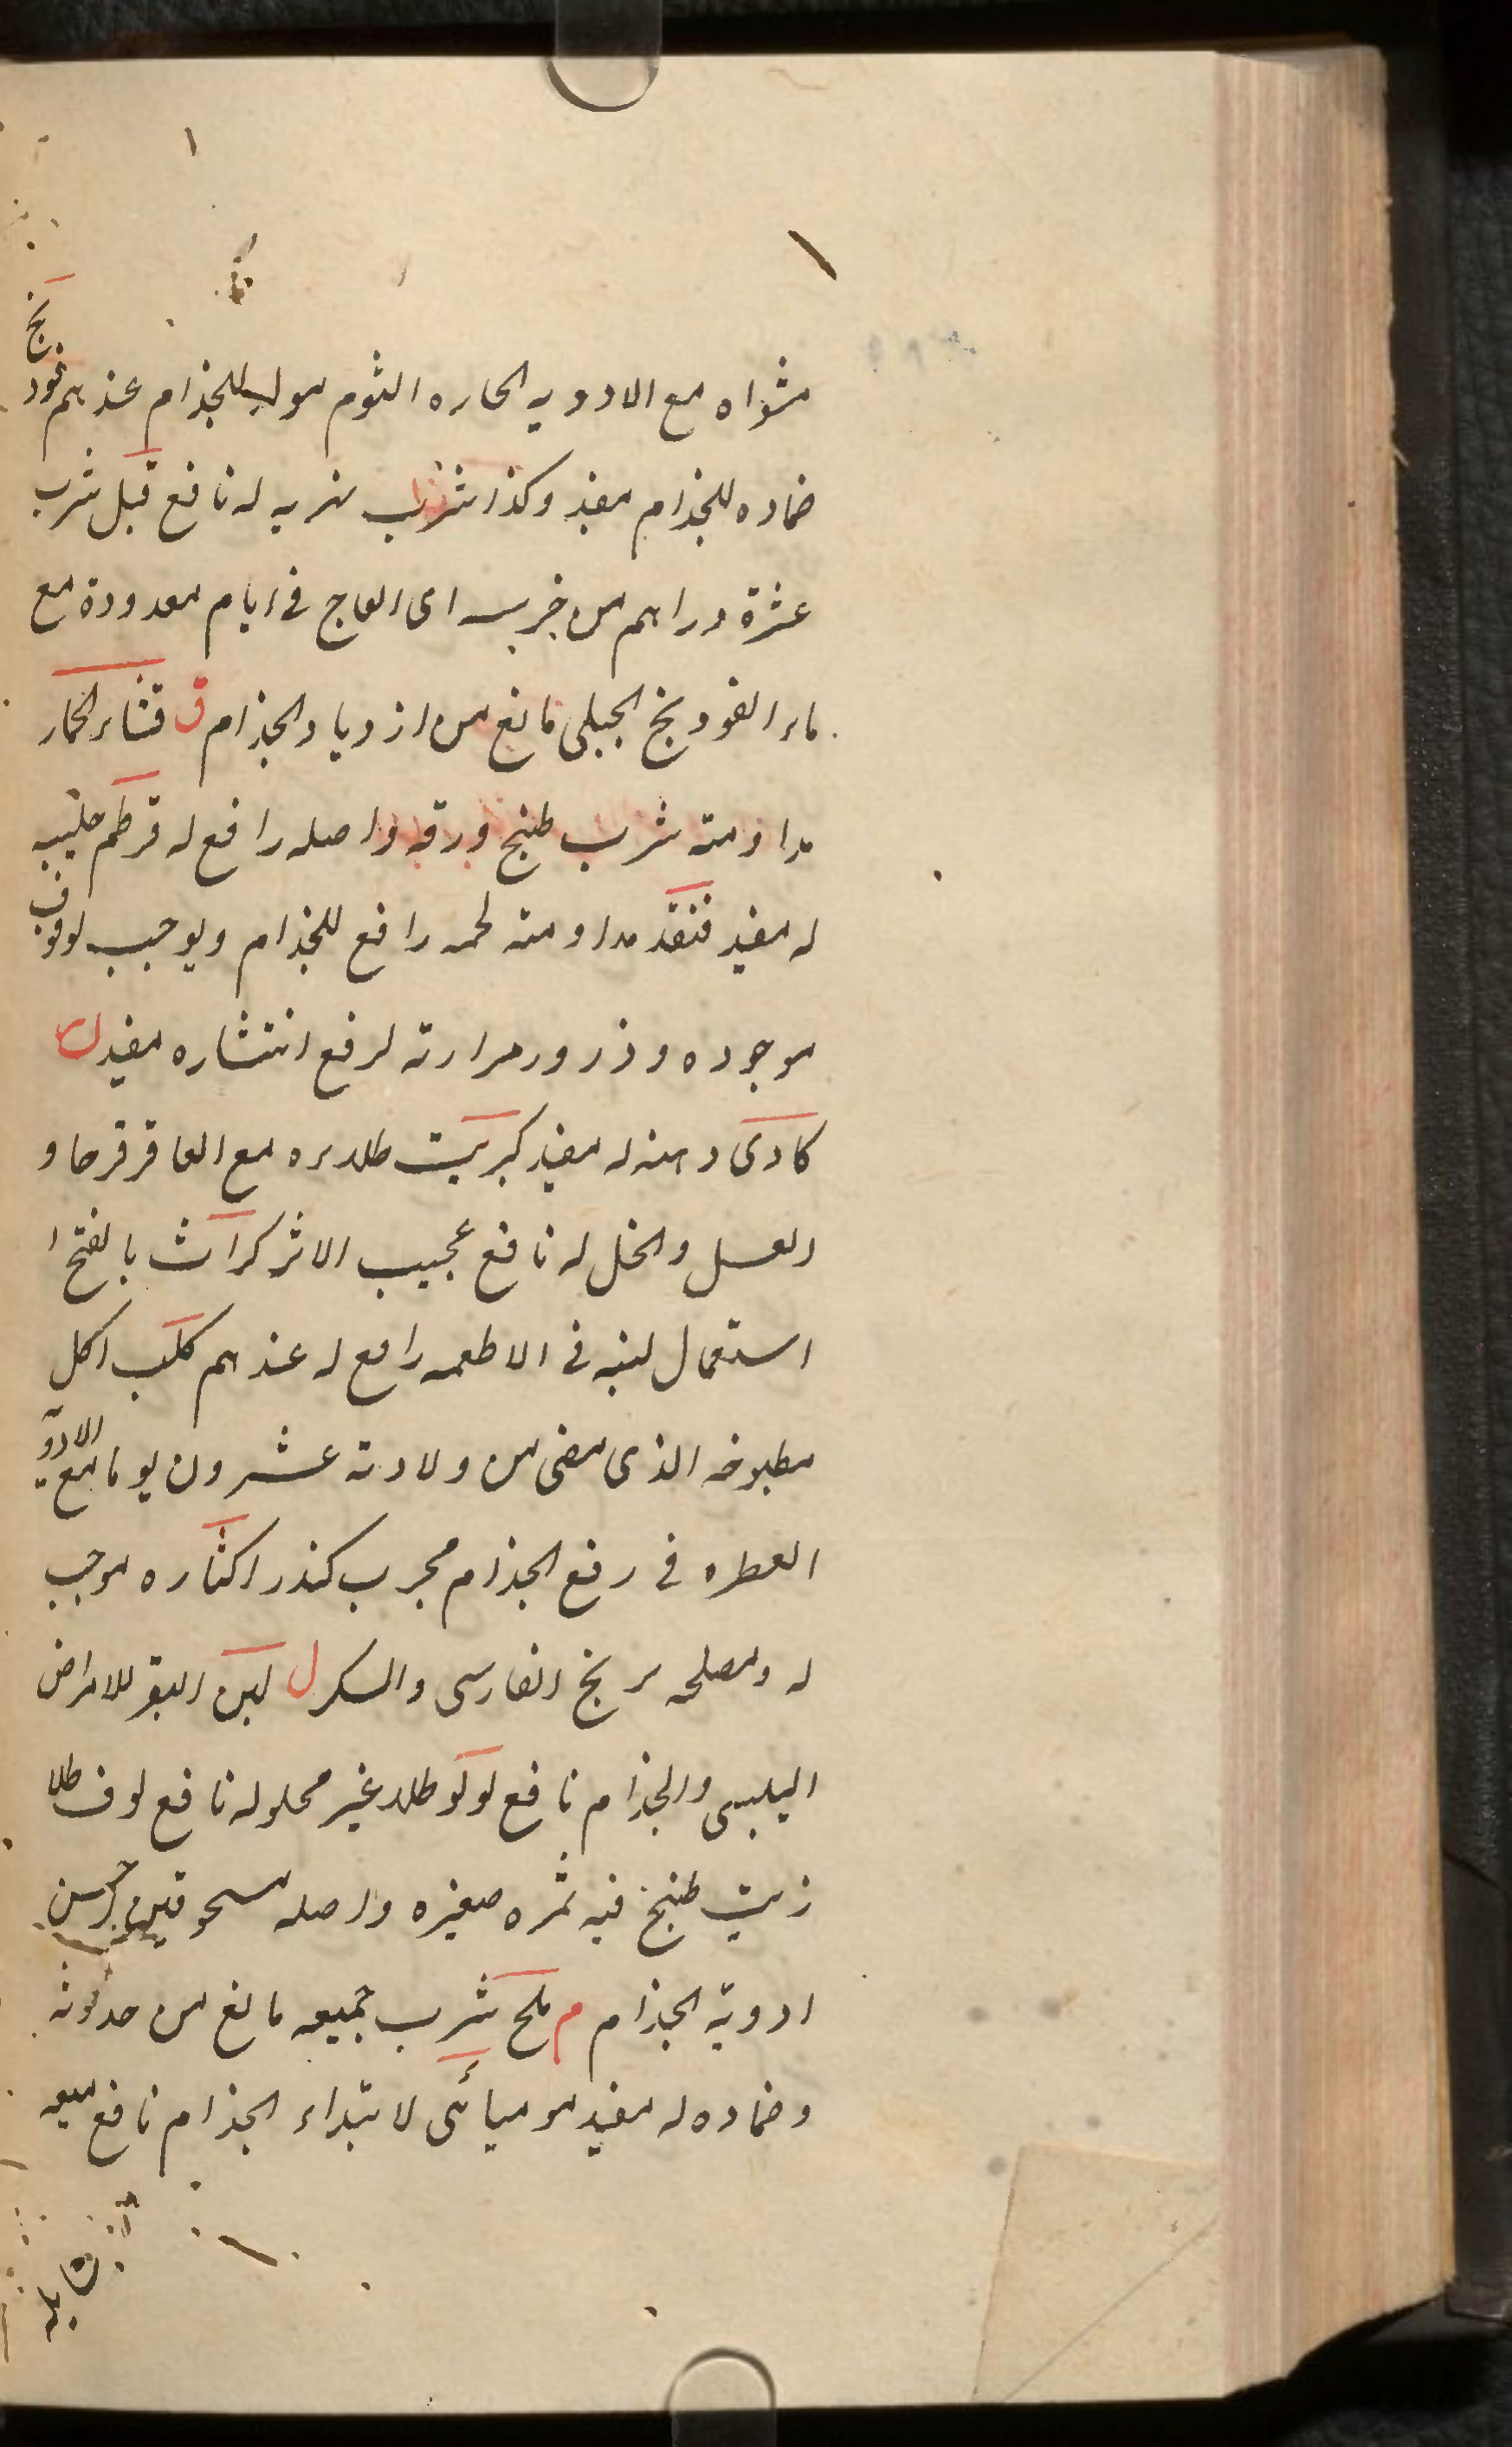 مشواه مع الادويه الحاره الثوم مولد للجذام عندهم فودنج
ضماده للجذام مفيد وكذا شرب شربه له نافع قبل شرب
عشرة دراهم من اى العاج فى ايام معدودة مع
ماء الفودنج الجبلى مانع من ازدياد الجذام ق قثاء الحمار
مداومته شرب طبيخ ورقه واصله رافع له قرطم حليبه
له مفيد قنفذ مداومته لحمه رافع للجذام ويوجب لوقوف
موجوده وذرور مرارته لرفع انتشاره مفيد ك
كادى دهنه له مفيد كبريت طلاءه مع العاقرقرحا و
العسل والخل له نافع عجيب الاثر كراث بالفتح
استعمال لبنه فى الاطعمه رافع له عندهم كلب اكل
مطبوخه الذى مضى من ولادته عشرون يوما مع الادويه
العطره فى رفع الجذام مجرب كندر اكثاره موجب
له ومصلحه الفارسى والسكر ل لبن البقر للامراض
اليلبسى والجذام نافع لولو طلاء غير محلوله نافع لوف طلا
زيت طبخ فيه ثمره صغيره واصله مسحوقين احسن
ادوية الجذام م ملح شرب جميعه مانع من حدوثه
وضماده له مفيد موميائى لابتداء الجذام نافع ميعه